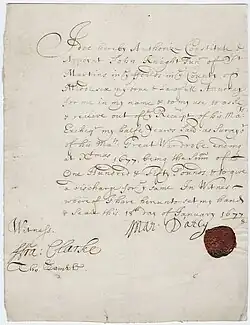 I doe hereby Authorize Constitute &
Appoint John Knight Junr of St
Martins in ye ffeilds in ye County of
Middx my true & Lawfull Attorney
for me in my name & to my use to aske
& receive out of ye Receipt of his Maties
Excheqr my halfe Yeares
of his Maties Great Wardrobe Ending
at Xtmas 1677 being the sume of
One Hundred & Fifty Pounds & to give
a discharge for ye same In Witnes
whereof I have hereunto set my hand
& Seale this 18th day of January 1677
Witness. Mar: Darcy
ffra: Clarke
Tho: